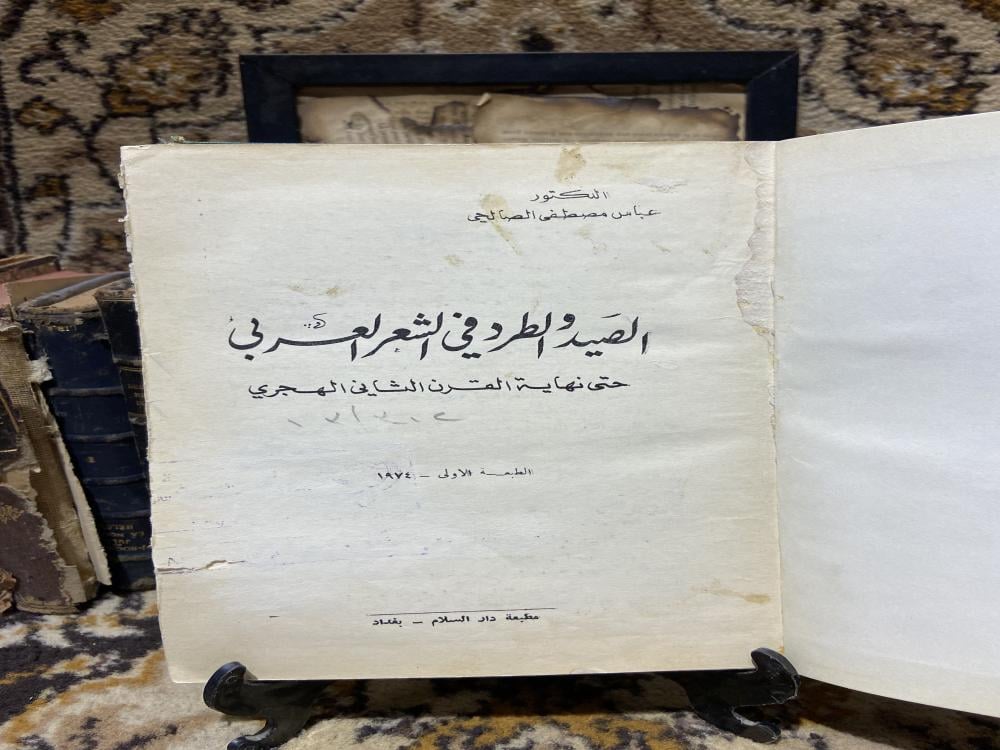 الدكتور
عباس مصطفى الصالحي
الصيد والطرد في الشعر العربي
حتى نهاية القرن الثاني الهجري
الطبعة الاولى - ١٩٧٤
مطبعة دار السلام - بغداد